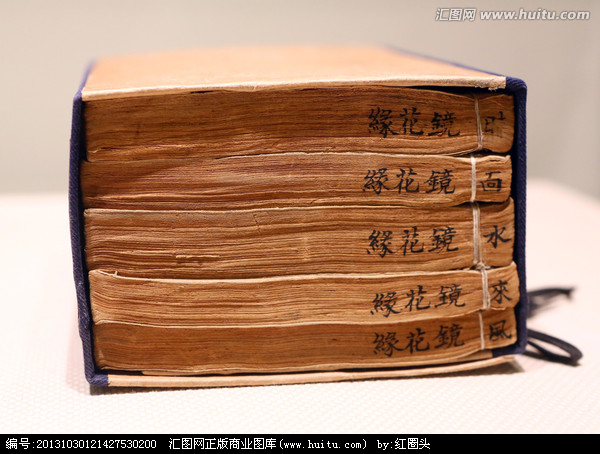 汇图网 www.huitu.com
鏡花緣
面 鏡花緣
水 鏡花緣
來 鏡花緣
風 鏡花緣
编号:20131030121427530200 汇图网正版商业图库(www.huitu.com) by:红圈头